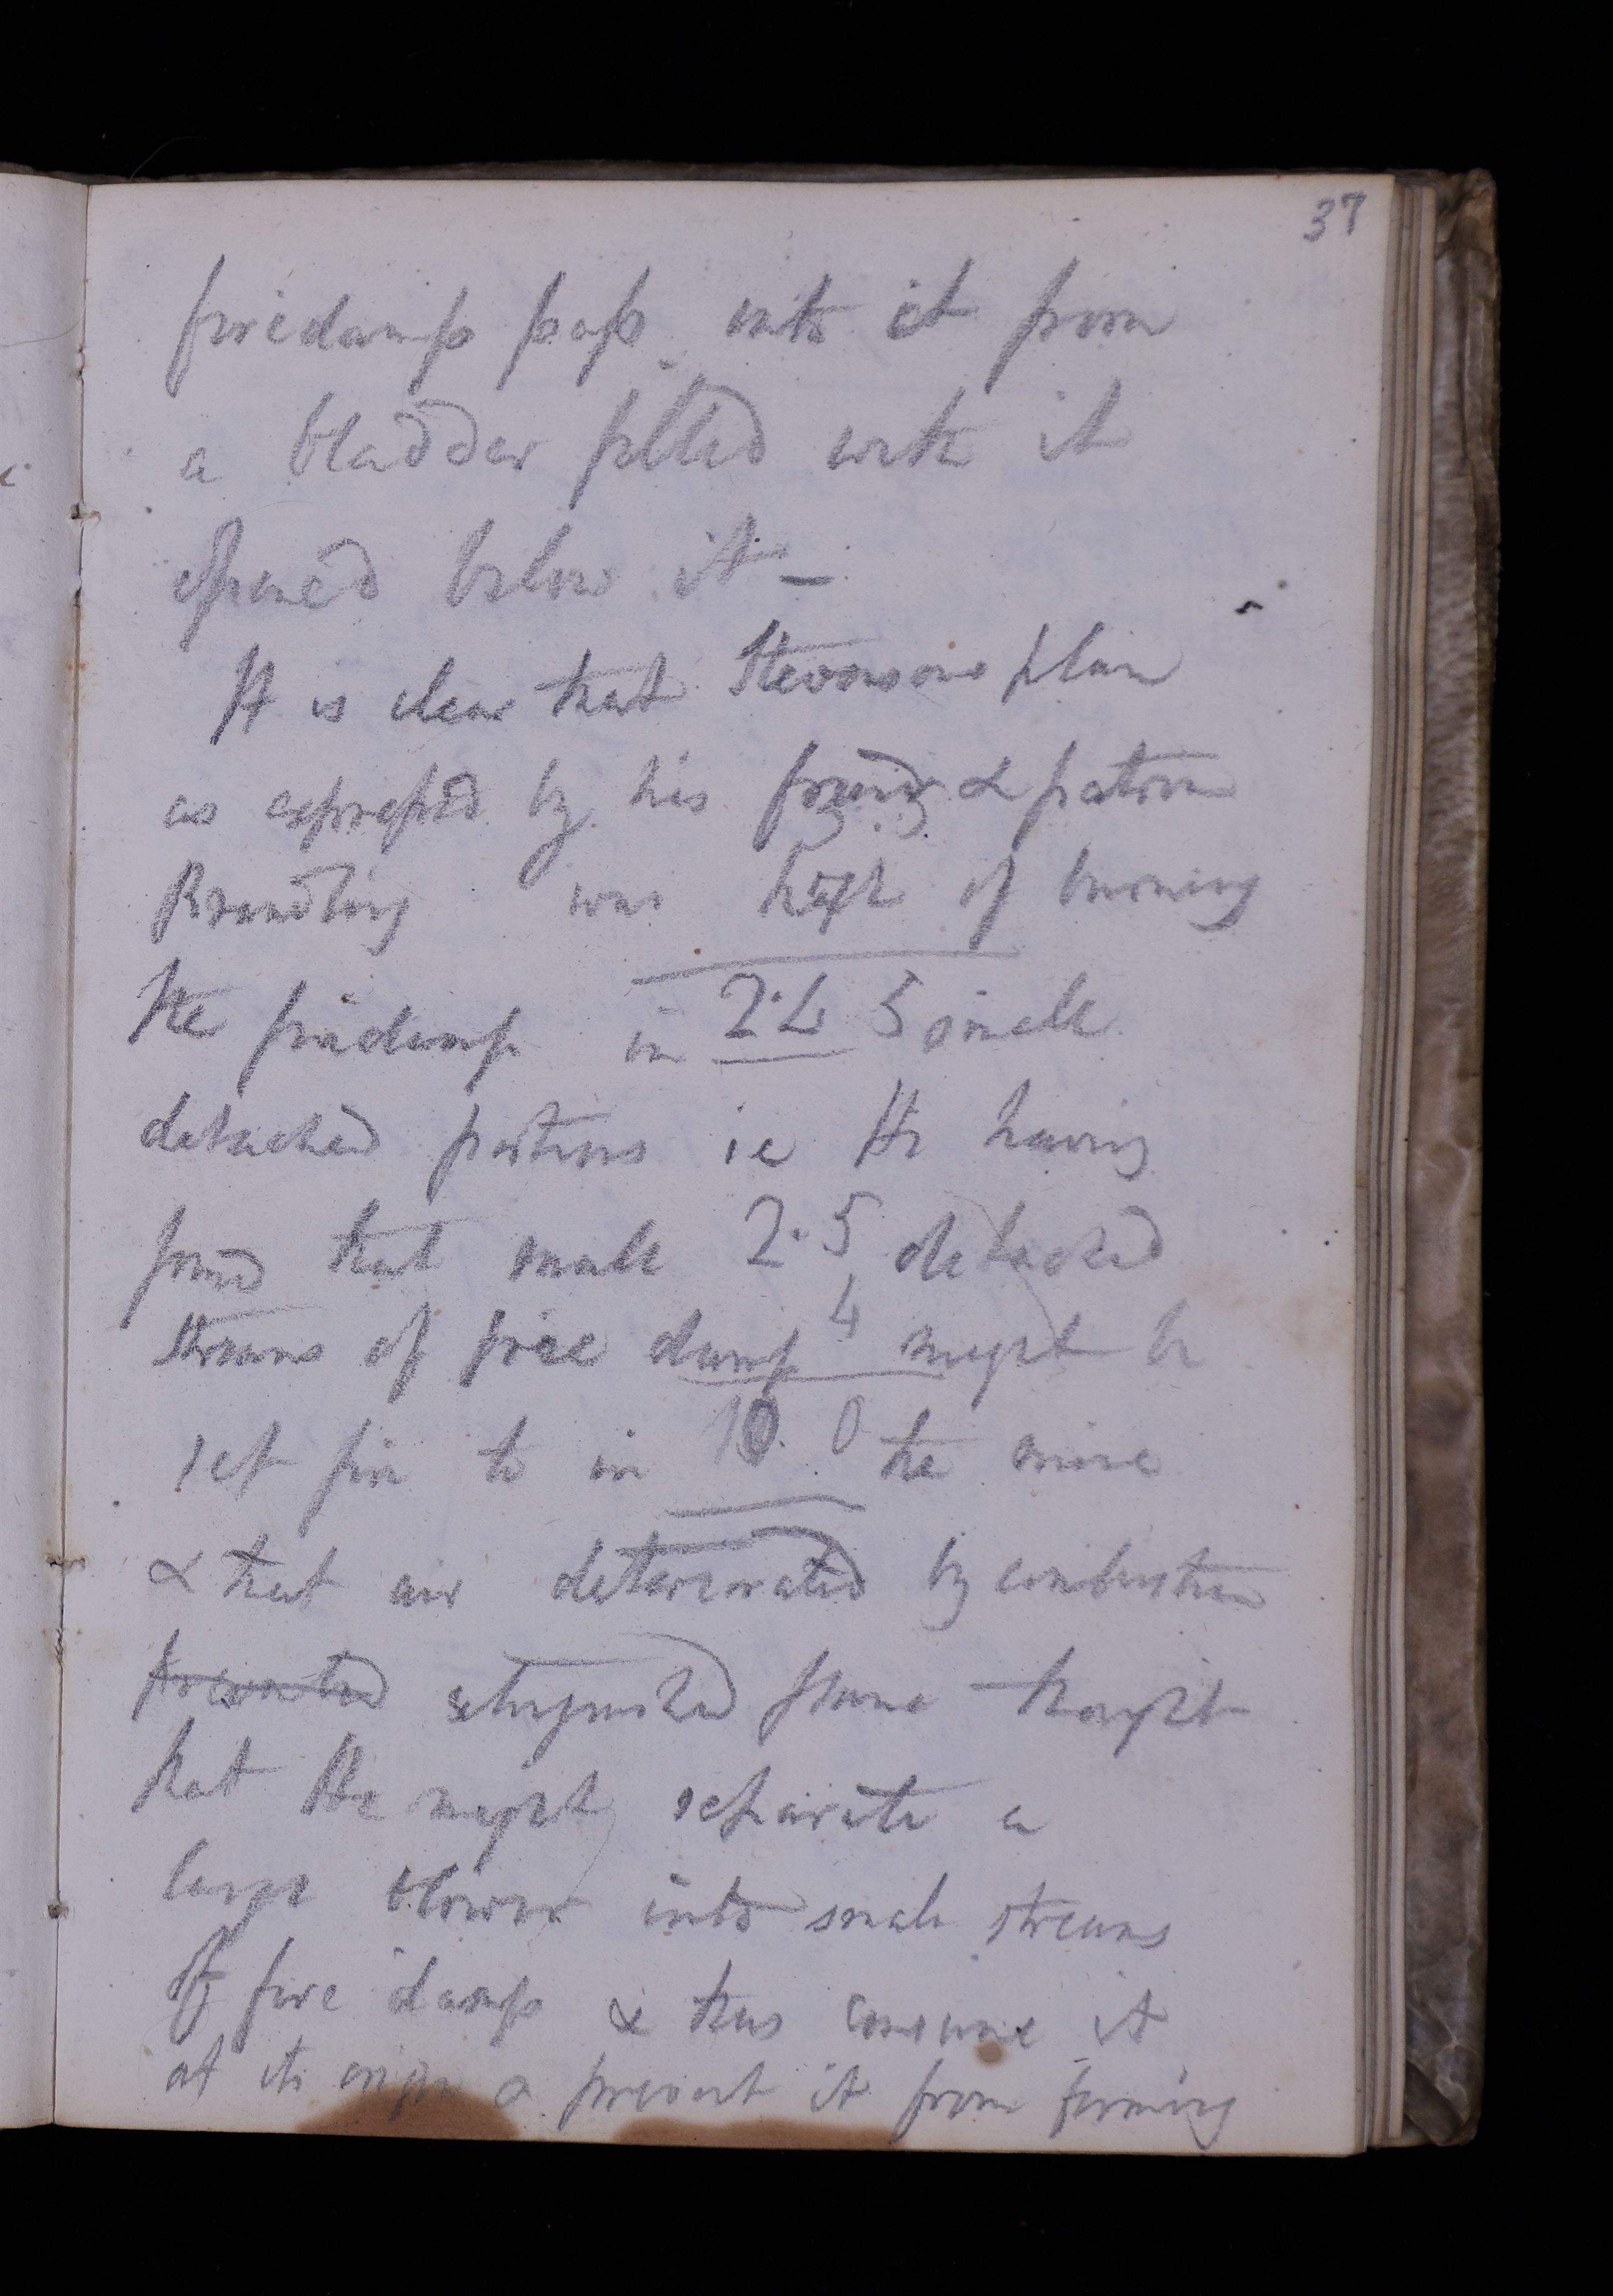 37
firedamp pass into it from
a bladder filled with it
opened below it -
It is clear that Stevensons plan
as expressed by his friend & patron
Brandling was that of burning
the firedamp in 2.4 5 small
detached portions ie He having
found that small 2.5 detached
4
streams of fire damp might be
set fire to in 10.0 the mine
& that air deteriorated by combustion
prevented extinguished flame thought
that He might separate a
large blower into small streams
of fire damp & thus consume it
at its origin & prevent it from forming